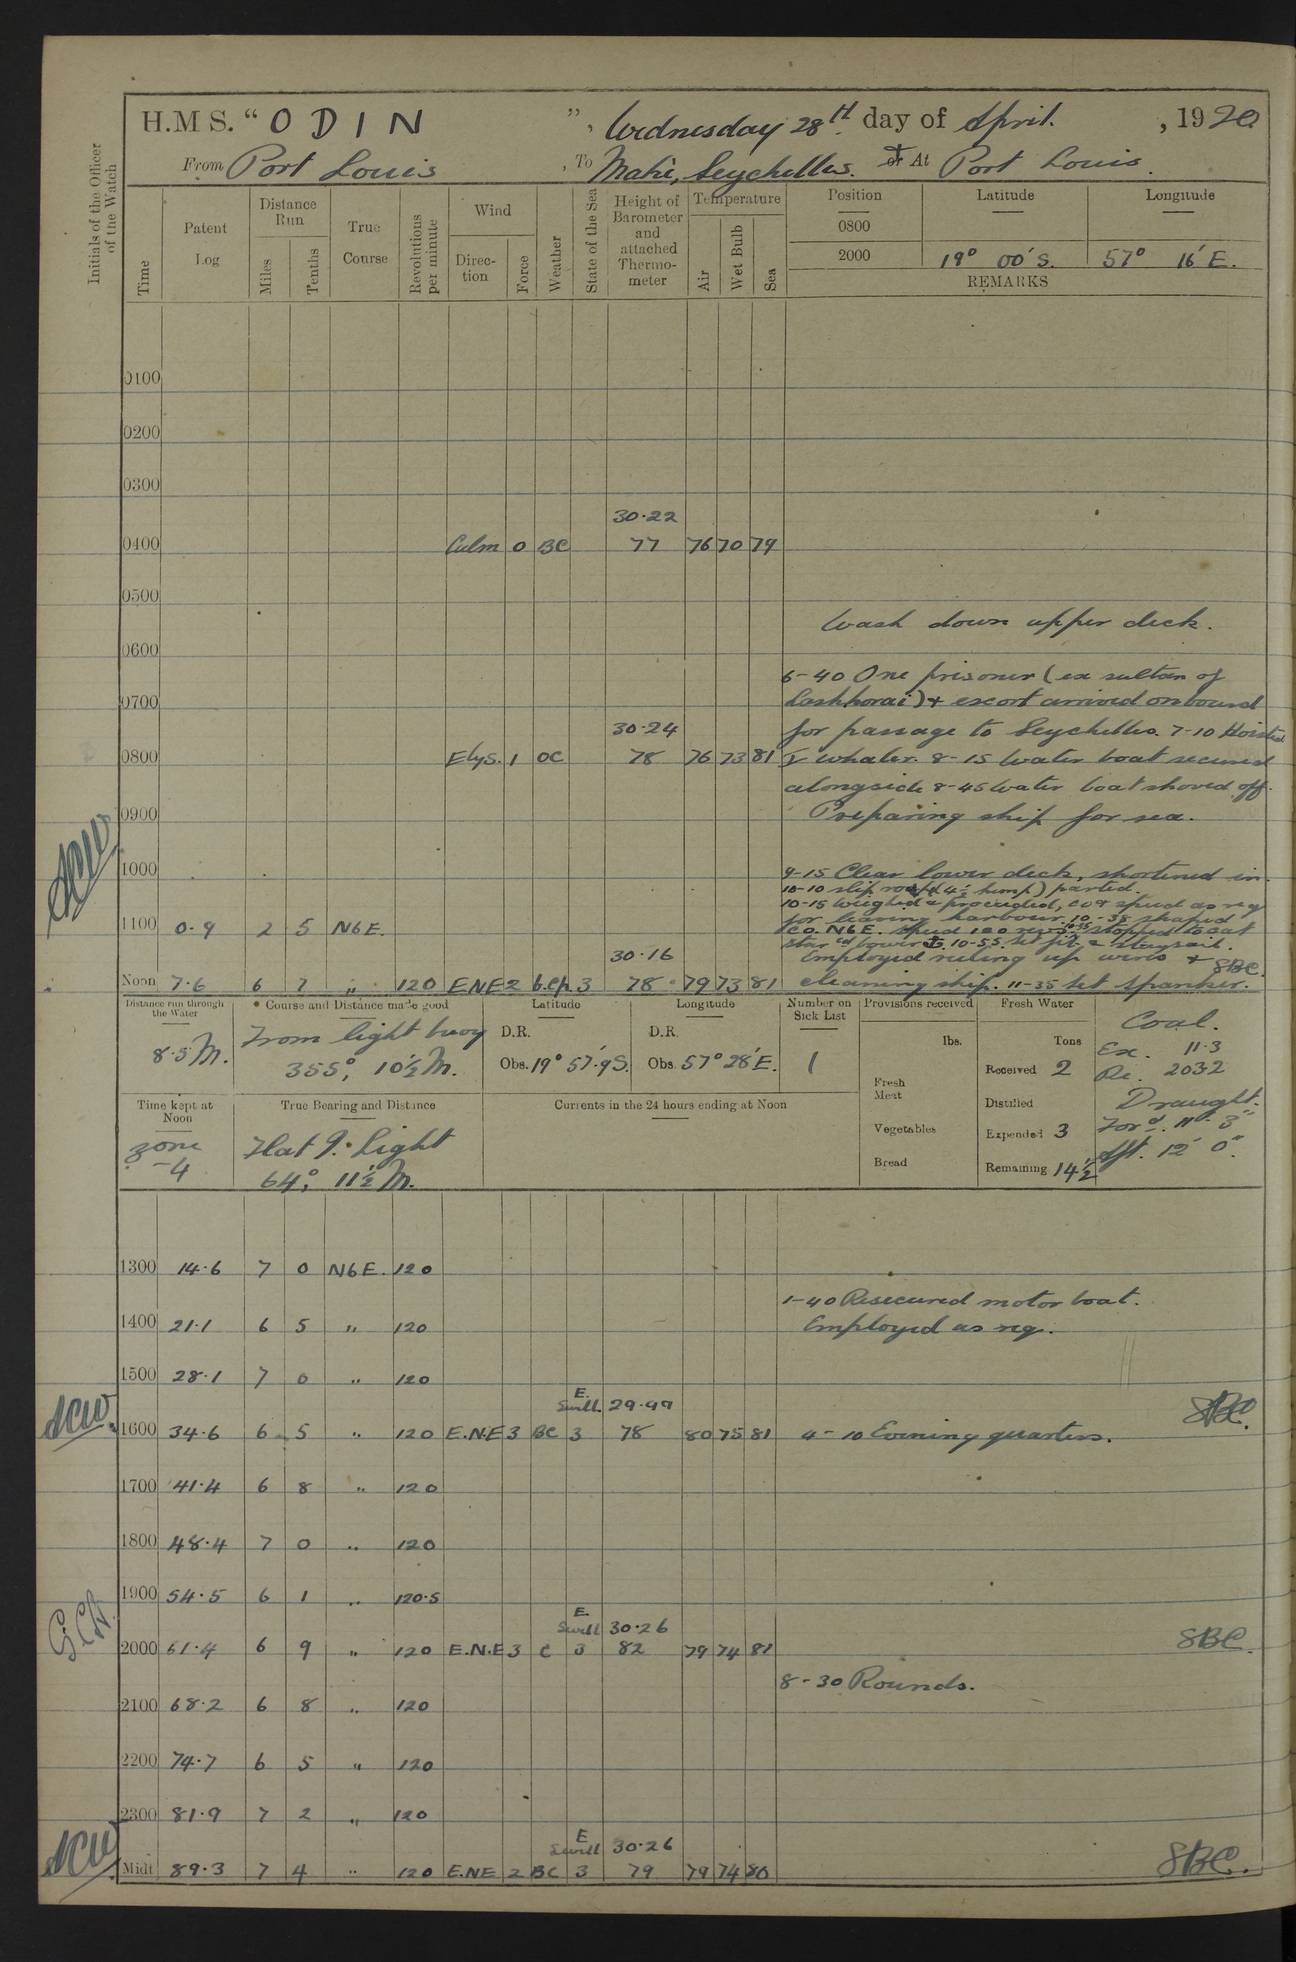 H.M S. “ O D I N ”, Wednesday 28th day of April. , 1920.
From Port Louis , To Mahé, Seychelles. & or At Port Louis.
Initials of the Officer of the Watch
Time
Patent Log
Distance Run
Miles
Tenths
True Course
Revolutions per minute
Wind
Direc-tion
Force
Weather
State of the Sea
Height of Barometer and attached Thermo-meter
Temperature
Air
Wet Bulb
Sea
Position
Latitude
Longitude
0800
2000 19° 00' S. 57° 16' E.
REMARKS
0100
0200
0300
30·22
0400 Calm 0 BC 77 76 70 79
0500
Wash down upper deck.
0600
6-40 One prisoner (ex sultan of
0700
) + escort arrived onboard
30·24 for passage to Seychelles. 7-10 Hoisted
0800 Elys. 1 OC 78 76 73 81 I whaler. 8-15 Water boat secured
alongside 8-45 Water boat shoved off.
0900 Preparing ship for sea.
ACW
1000 9-15 Clear lower deck, shortened in.
10-10 slip rope (4½ hemp) parted.
10-15 Weighed & proceeded, co & speed as req
for leaving harbour. 10-38 shaped
1100 0·9 2 5 N6E. co. N6E. speed 120 revs. 10-35 stopped to cat
starbd bower. 10-55 set jib & staysail.
30·16 Employed reeling up wires +
Noon 7·6 6 7 " 120 ENE 2 b.cp. 3 78 79 73 81 cleaning ship. 11-35 set spanker. SBC.
Distance run through the Water
8·5 M.
* Course and Distance made good
From light buoy
355°, 10½ M.
Latitude
D.R.
Obs. 19° 57'·9 S.
Longitude
D.R.
Obs. 57° 28' E.
Number on Sick List
1
Provisions received
lbs.
Fresh Meat
Vegetables
Bread
Fresh Water
Tons
Received 2
Distilled
Expended 3
Remaining 14½
Coal.
Ex. 11·3
Re. 203·2
Draught.
Ford. 11' 3"
Aft. 12' 0".
Time kept at Noon
zone
-4
True Bearing and Distance
Flat I. Light
64°, 11½ M.
Currents in the 24 hours ending at Noon
1300 14·6 7 0 N6E. 120
1-40 Resecured motor boat.
1400 21·1 6 5 " 120 Employed as req.
1500 28·1 7 0 " 120
E. Swell 29·99
ACW 1600 34·6 6 5 " 120 E.N.E 3 BC 3 78 80 75 81 4-10 Evening quarters. SBC.
1700 41·4 6 8 " 120
1800 48·4 7 0 " 120
1900 54·5 6 1 " 120·5
E. Swell 30·26
2000 61·4 6 9 " 120 E.N.E 3 C 3 82 79 74 81 SBC.
8-30 Rounds.
2100 68·2 6 8 " 120
2200 74·7 6 5 " 120
2300 81·9 7 2 " 120
E Swell 30·26
ACW Midt 89·3 7 4 " 120 E.NE 2 BC 3 79 79 74 80 SBC.